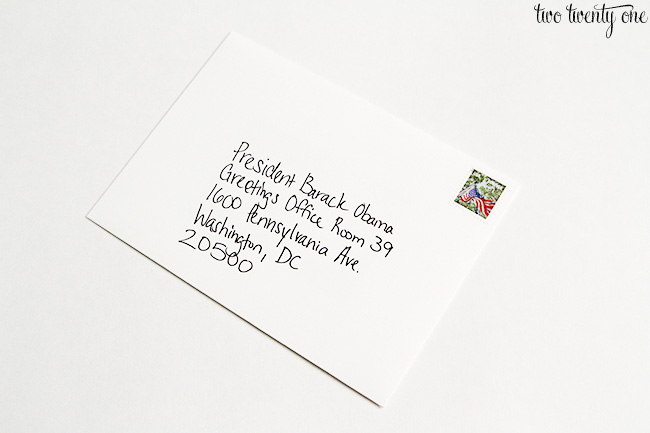 two twenty one
President Barack Obama
Greetings Office Room 39
1600 Pennsylvania Ave.
Washington, DC
20500